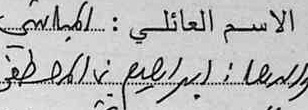 الاسم العائلي : العباسي
والدها : ابراهيم بن المصطفى